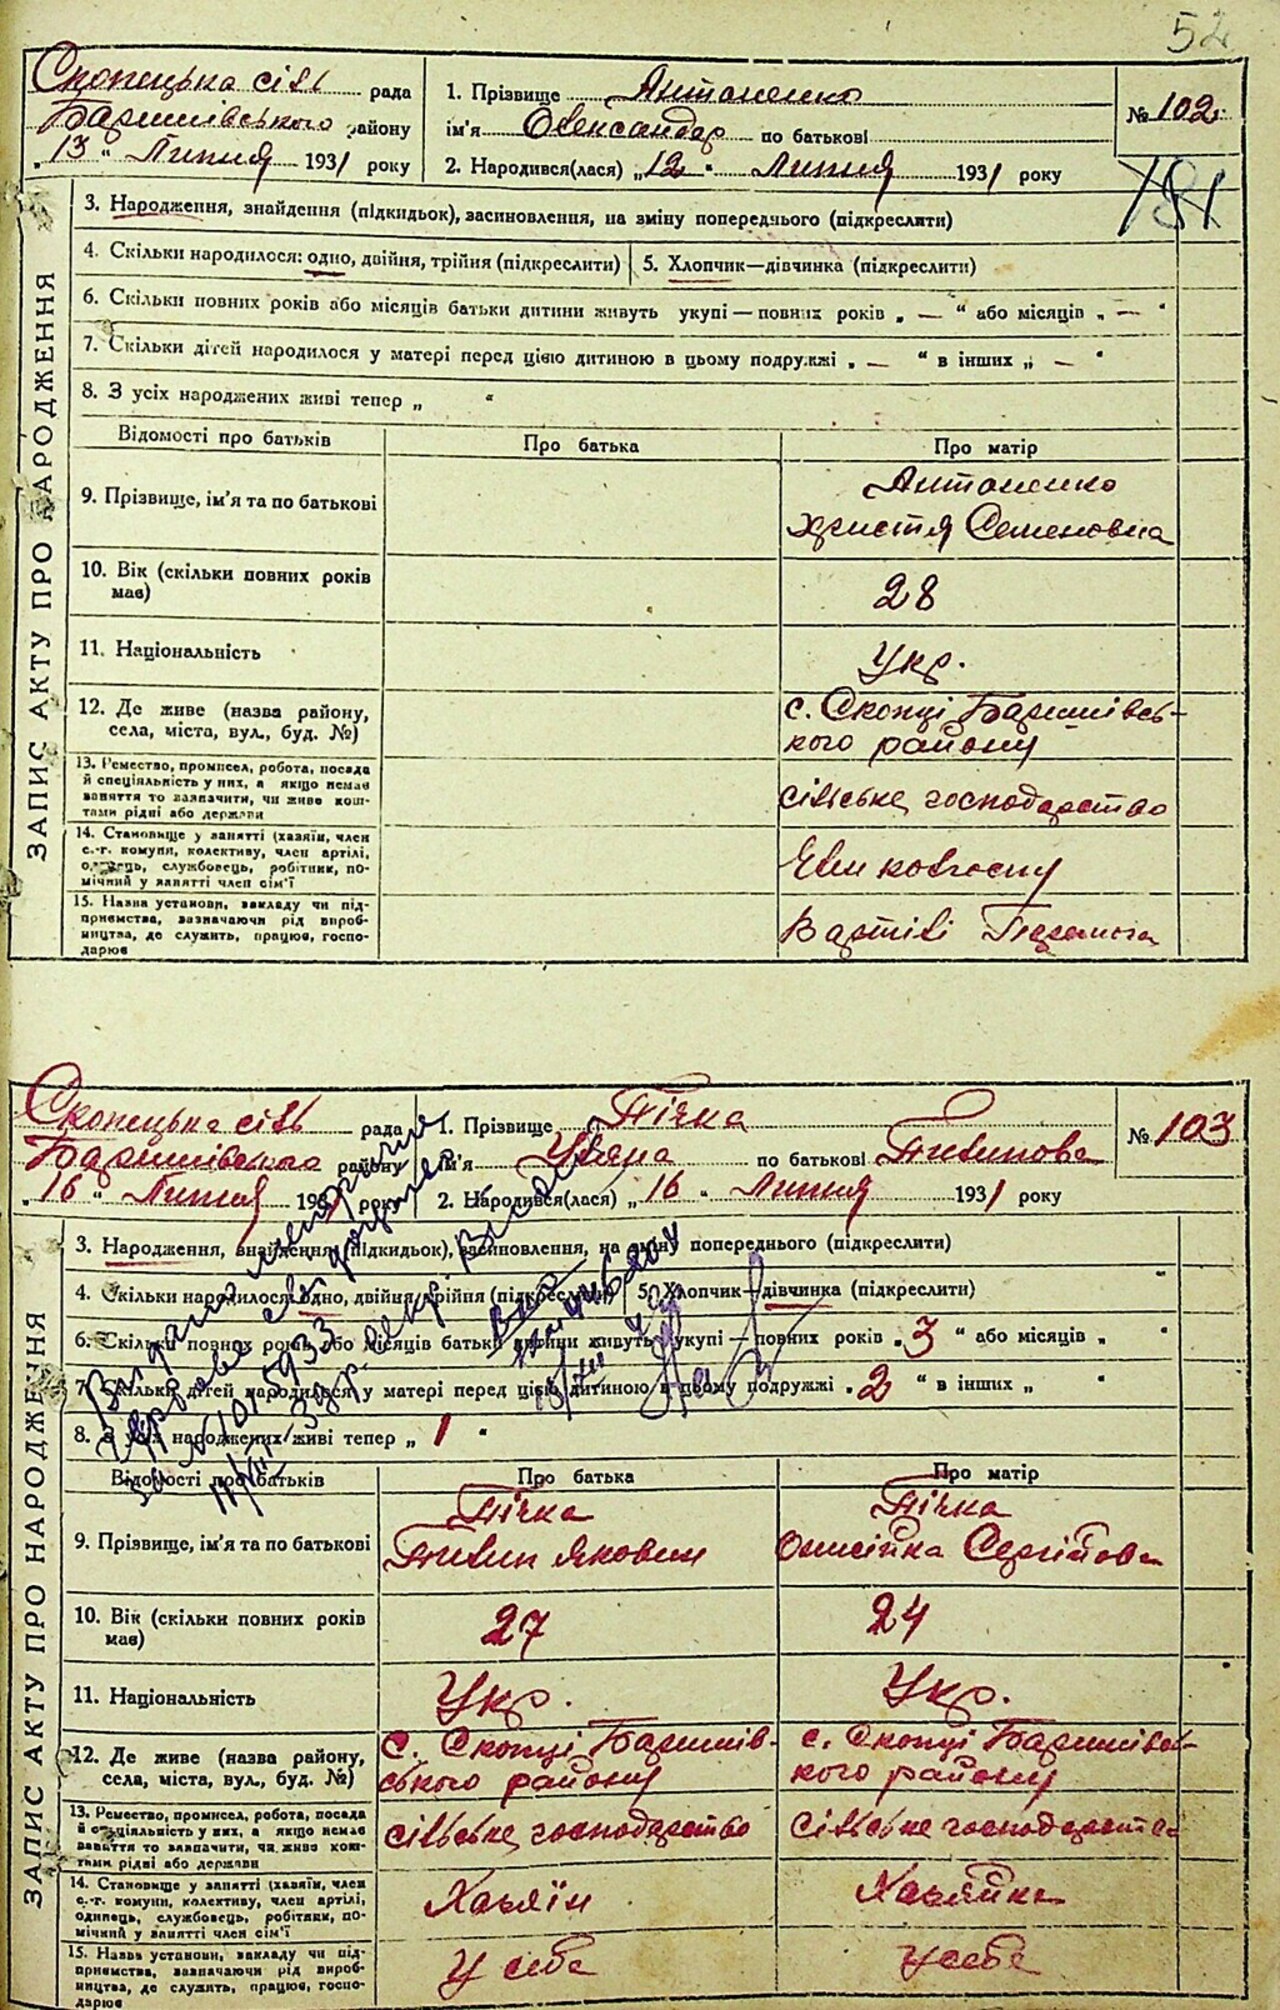 52
Скопецька сіль рада
Баришівського району
„13“ Липня 1931 року
1. Прізвище Антоненко
ім'я Олександр по батькові
2. Народився(лася) „12“ Липня 1931 року
№ 102
781
ЗАПИС АКТУ ПРО НАРОДЖЕННЯ
3. Народження, знайдення (підкидьок), засиновлення, на зміну попереднього (підкреслити)
4. Скільки народилося: одно, двійня, трійня (підкреслити) 5. Хлопчик—дівчинка (підкреслити)
6. Скільки повних років або місяців батьки дитини живуть укупі — повних років „ — “ або місяців „ — “
7. Скільки дітей народилося у матері перед цією дитиною в цьому подружжі „ — “ в інших „ — “
8. З усіх народжених живі тепер „ “
Відомості про батьків Про батька Про матір
9. Прізвище, ім'я та по батькові
Антоненко
Христя Семеновна
10. Вік (скільки повних років
має)
28
11. Національність
Укр.
12. Де живе (назва району,
села, міста, вул., буд. №)
с. Скопці Баришівсь-
кого району
13. Ремество, промисел, робота, посада
й спеціяльність у них, а якщо немає
заняття то зазначити, чи живе кош-
тами рідні або держави
сільське господарство
14. Становище у занятті (хазяїн, член
с.-г. комуни, колективу, член артілі,
одинець, службовець, робітник, по-
мічний у занятті член сім'ї
Член колгоспу
15. Назва установи, закладу чи під-
приємства, зазначаючи рід вироб-
ництва, де служить, працює, госпо-
дарює
В артілі Перемога
Скопецька сіль рада
Баришівського району
„16“ Липня 1931 року
1. Прізвище Пічка
ім'я Уляна по батькові Пилипова
2. Народився(лася) „16“ Липня 1931 року
№ 103
ЗАПИС АКТУ ПРО НАРОДЖЕННЯ
3. Народження, знайдення (підкидьок), засиновлення, на зміну попереднього (підкреслити)
4. Скільки народилося: одно, двійня, трійня (підкреслити) 5. Хлопчик—дівчинка (підкреслити)
6. Скільки повних років або місяців батьки дитини живуть укупі — повних років „3“ або місяців „ “
7. Скільки дітей народилося у матері перед цією дитиною в цьому подружжі „2“ в інших „ “
8. З усіх народжених живі тепер „1“
Відомості про батьків Про батька Про матір
9. Прізвище, ім'я та по батькові
Пічка
Пилип Якович
Пічка
Онисійка Сергійова
10. Вік (скільки повних років
має)
27
24
11. Національність
Укр.
Укр.
12. Де живе (назва району,
села, міста, вул., буд. №)
с. Скопці Баришів-
ського району
с. Скопці Баришівсь-
кого району
13. Ремество, промисел, робота, посада
й спеціяльність у них, а якщо немає
заняття то зазначити, чи живе кош-
тами рідні або держави
сільське господарство
сільське господарство
14. Становище у занятті (хазяїн, член
с.-г. комуни, колективу, член артілі,
одинець, службовець, робітник, по-
мічний у занятті член сім'ї
Хазяїн
Хазяйка
15. Назва установи, закладу чи під-
приємства, зазначаючи рід вироб-
ництва, де служить, працює, госпо-
дарює
У себе
У себе